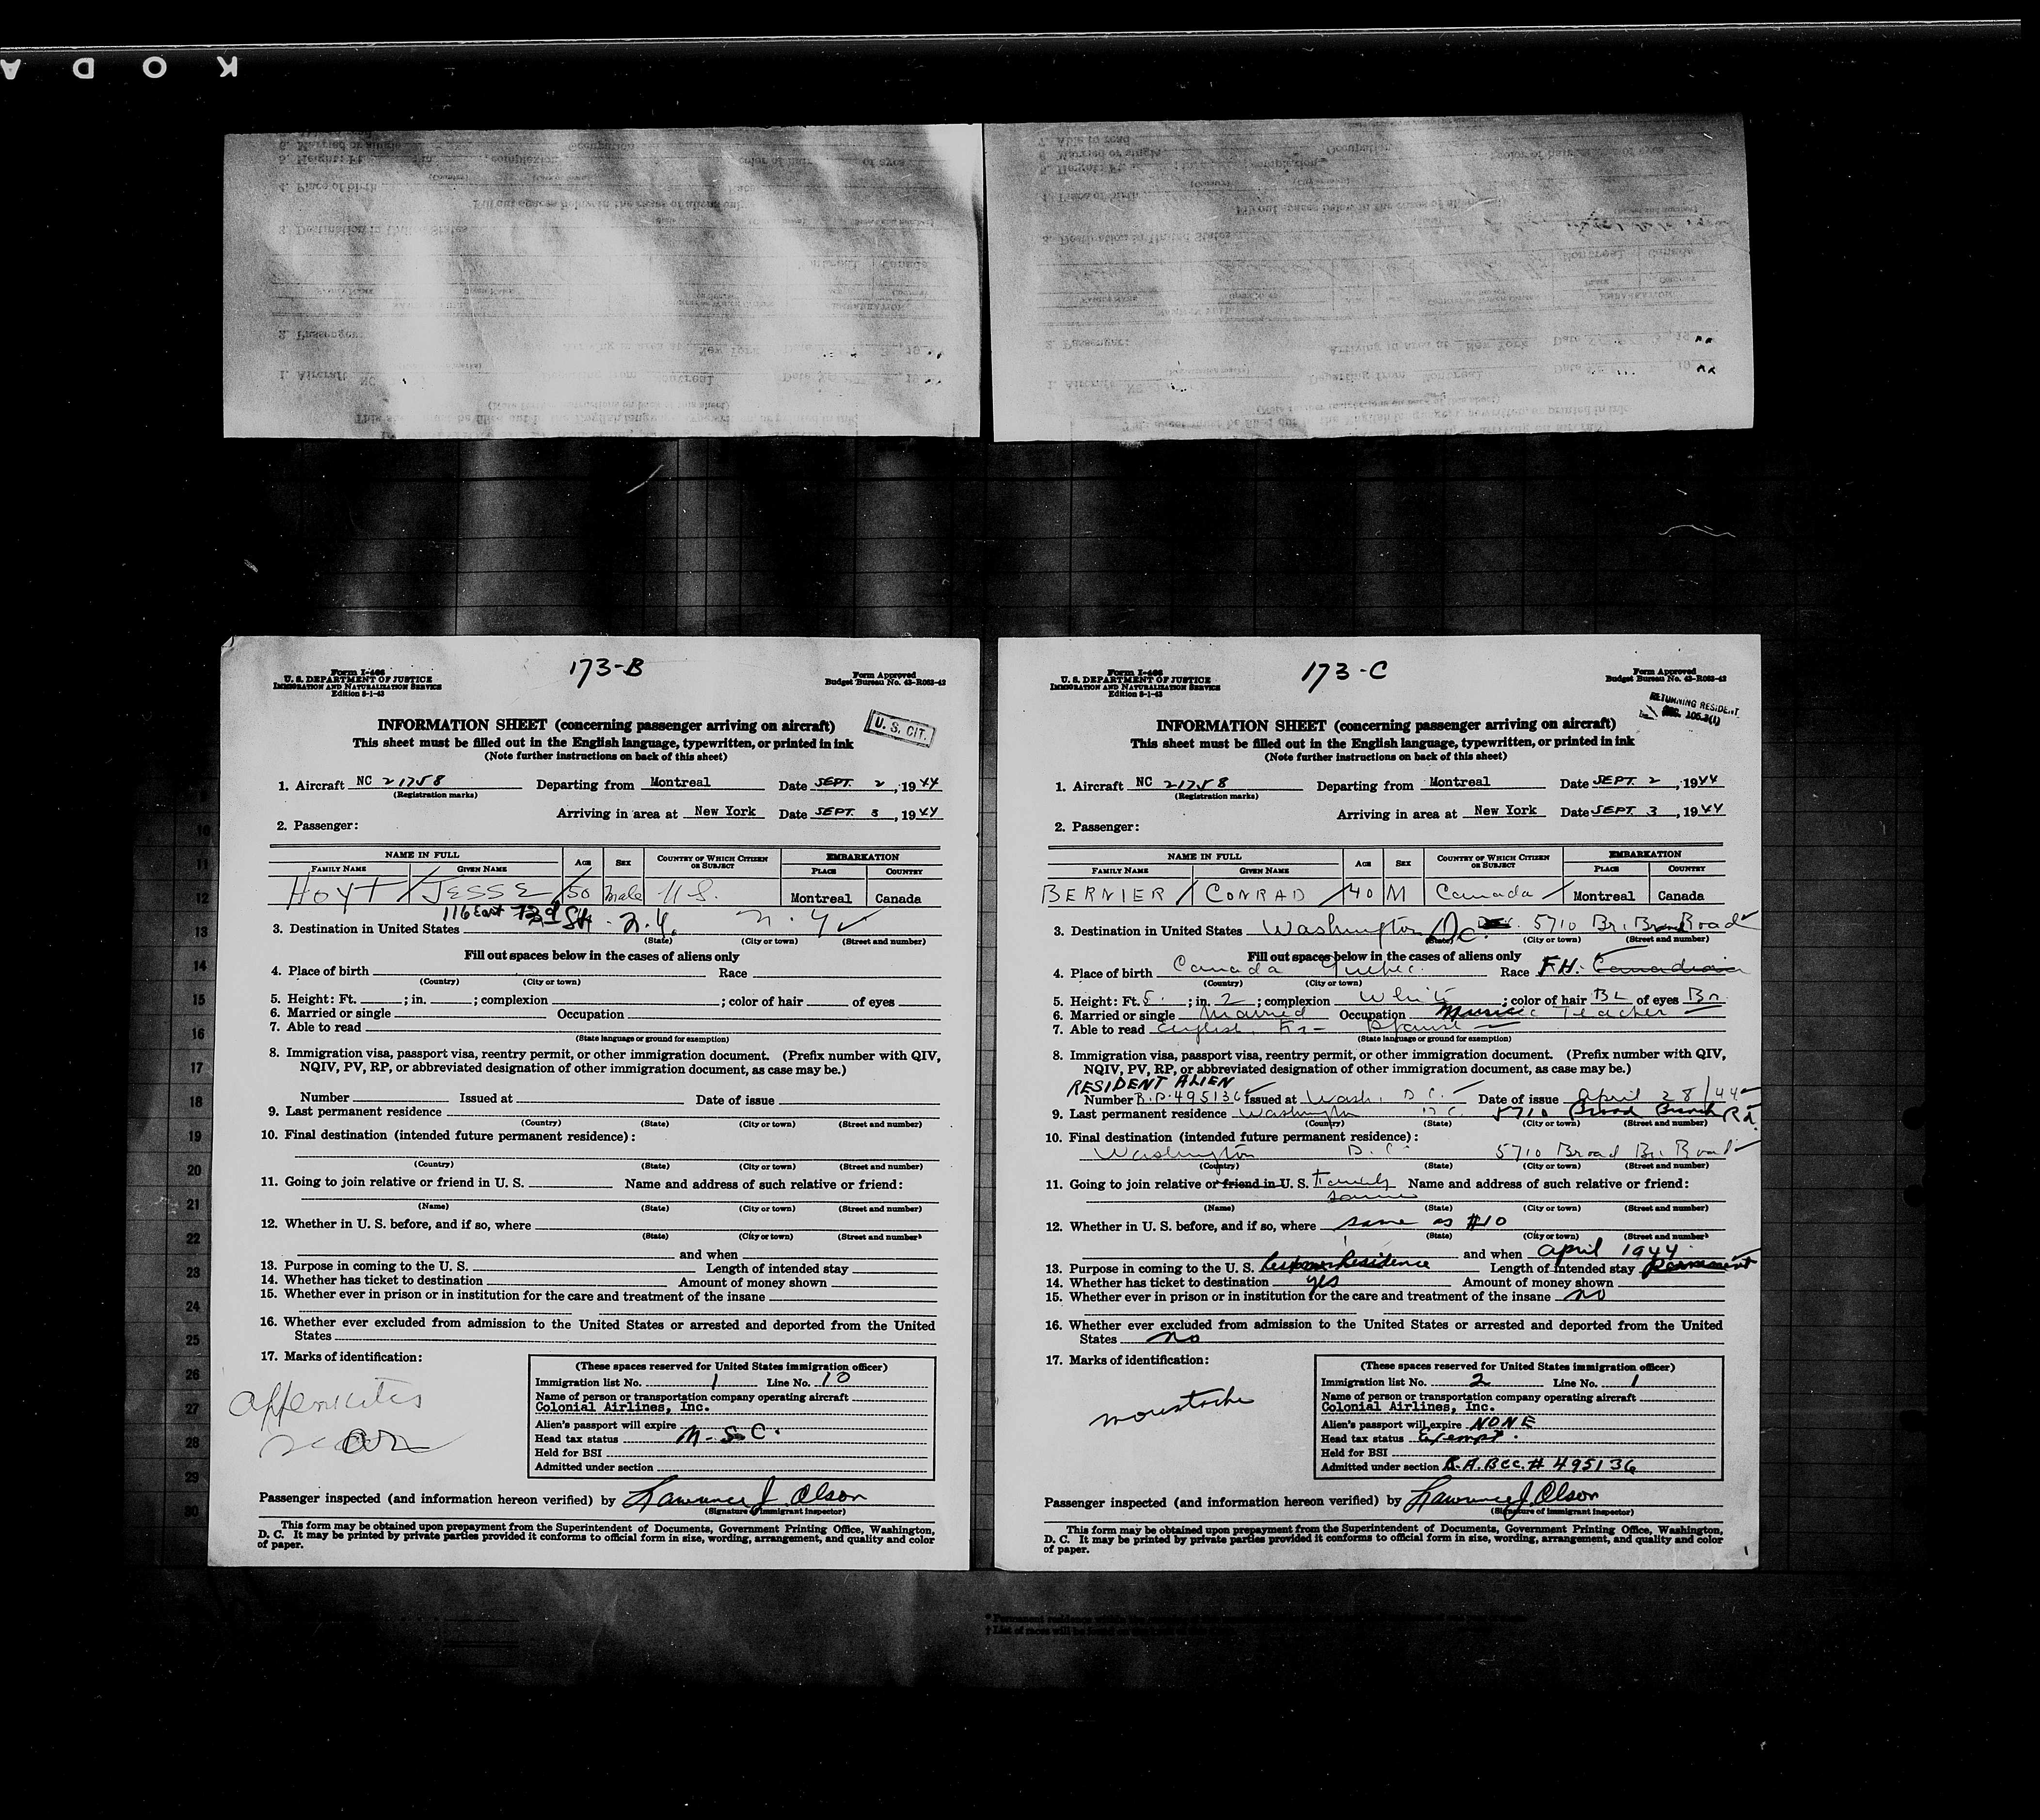 KODA
173-B
Form I-466
U. S. DEPARTMENT OF JUSTICE
IMMIGRATION AND NATURALIZATION SERVICE
Edition 8-1-43
Form Approved
Budget Bureau No. 43-R063-42
U. S. CIT.
INFORMATION SHEET (concerning passenger arriving on aircraft)
This sheet must be filled out in the English language, typewritten, or printed in ink
(Note further instructions on back of this sheet)
1. Aircraft NC 21758 Departing from Montreal Date SEPT. 2, 1944
(Registration marks)
Arriving in area at New York Date SEPT. 3, 1944
2. Passenger:
NAME IN FULL AGE SEX COUNTRY OF WHICH CITIZEN OR SUBJECT EMBARKATION
FAMILY NAME GIVEN NAME PLACE COUNTRY
HOYT / JESSE / 50 Male U.S. Montreal Canada
116 East 73rd St. N.Y. N.Y.
3. Destination in United States
(State) (City or town) (Street and number)
Fill out spaces below in the cases of aliens only
4. Place of birth Race
(Country) (City or town)
5. Height: Ft. ; in. ; complexion ; color of hair of eyes
6. Married or single Occupation
7. Able to read
(State language or ground for exemption)
8. Immigration visa, passport visa, reentry permit, or other immigration document. (Prefix number with QIV,
NQIV, PV, RP, or abbreviated designation of other immigration document, as case may be.)
Number Issued at Date of issue
9. Last permanent residence
(Country) (State) (City or town) (Street and number)
10. Final destination (intended future permanent residence):
(Country) (State) (City or town) (Street and number)
11. Going to join relative or friend in U. S. Name and address of such relative or friend:
(Name) (State) (City or town) (Street and number)
12. Whether in U. S. before, and if so, where
(State) (City or town) (Street and number)
and when
13. Purpose in coming to the U. S. Length of intended stay
14. Whether has ticket to destination Amount of money shown
15. Whether ever in prison or in institution for the care and treatment of the insane
16. Whether ever excluded from admission to the United States or arrested and deported from the United
States
17. Marks of identification:
scar
(These spaces reserved for United States immigration officer)
Immigration list No. 1 Line No. 10
Name of person or transportation company operating aircraft
Colonial Airlines, Inc.
Alien's passport will expire
Head tax status N-S-C.
Held for BSI
Admitted under section
Passenger inspected (and information hereon verified) by Lawrence J. Olson
(Signature of immigrant inspector)
This form may be obtained upon prepayment from the Superintendent of Documents, Government Printing Office, Washington,
D. C. It may be printed by private parties provided it conforms to official form in size, wording, arrangement, and quality and color
of paper.
173-C
Form I-466
U. S. DEPARTMENT OF JUSTICE
IMMIGRATION AND NATURALIZATION SERVICE
Edition 8-1-43
Form Approved
Budget Bureau No. 43-R063-42
RETURNING RESIDENT
INFORMATION SHEET (concerning passenger arriving on aircraft)
This sheet must be filled out in the English language, typewritten, or printed in ink
(Note further instructions on back of this sheet)
1. Aircraft NC 21758 Departing from Montreal Date SEPT. 2, 1944
(Registration marks)
Arriving in area at New York Date SEPT. 3, 1944
2. Passenger:
NAME IN FULL AGE SEX COUNTRY OF WHICH CITIZEN OR SUBJECT EMBARKATION
FAMILY NAME GIVEN NAME PLACE COUNTRY
BERNIER / CONRAD / 40 M Canada / Montreal Canada
3. Destination in United States Washington D.C. 5710 Br. Road
(State) (City or town) (Street and number)
Fill out spaces below in the cases of aliens only
4. Place of birth Canada Quebec Race F.H. Canadian
(Country) (City or town)
5. Height: Ft. 5 ; in. 2 ; complexion White ; color of hair BL of eyes Bn
6. Married or single Married Occupation Music Teacher
7. Able to read English, Fr-
(State language or ground for exemption)
8. Immigration visa, passport visa, reentry permit, or other immigration document. (Prefix number with QIV,
NQIV, PV, RP, or abbreviated designation of other immigration document, as case may be.)
RESIDENT ALIEN
Number 495136 Issued at Wash. D.C. Date of issue April 28/44
9. Last permanent residence Washington D.C. 5710 Broad Branch Rd
(Country) (State) (City or town) (Street and number)
10. Final destination (intended future permanent residence):
Washington D.C. 5710 Broad Br. Road
(Country) (State) (City or town) (Street and number)
11. Going to join relative or friend in U. S. Family Name and address of such relative or friend:
same
(Name) (State) (City or town) (Street and number)
12. Whether in U. S. before, and if so, where same as #10
(State) (City or town) (Street and number)
and when April 1944
13. Purpose in coming to the U. S. Residence Length of intended stay Permanent
14. Whether has ticket to destination yes Amount of money shown
15. Whether ever in prison or in institution for the care and treatment of the insane no
16. Whether ever excluded from admission to the United States or arrested and deported from the United
States no
17. Marks of identification:
moustache
(These spaces reserved for United States immigration officer)
Immigration list No. 2 Line No. 1
Name of person or transportation company operating aircraft
Colonial Airlines, Inc.
Alien's passport will expire NONE
Head tax status Exempt.
Held for BSI
Admitted under section R.A.BCC.# 495136
Passenger inspected (and information hereon verified) by Lawrence J. Olson
(Signature of immigrant inspector)
This form may be obtained upon prepayment from the Superintendent of Documents, Government Printing Office, Washington,
D. C. It may be printed by private parties provided it conforms to official form in size, wording, arrangement, and quality and color
of paper.